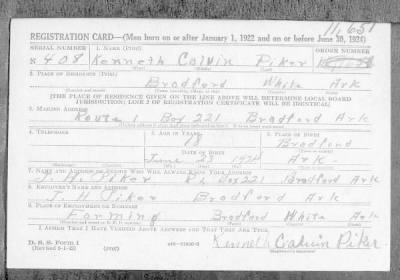 11,651
REGISTRATION CARD—(Men born on or after January 1, 1922 and on or before June 30, 1924)
SERIAL NUMBER 1. NAME (Print) ORDER NUMBER
N 408 Kenneth Calvin Piker
2. PLACE OF RESIDENCE (Print)
Bradford White Ark
[THE PLACE OF RESIDENCE GIVEN ON THE LINE ABOVE WILL DETERMINE LOCAL BOARD
JURISDICTION; LINE 2 OF REGISTRATION CERTIFICATE WILL BE IDENTICAL]
3. MAILING ADDRESS
Route 1 Box 221 Bradford Ark
4. TELEPHONE 5. AGE IN YEARS 6. PLACE OF BIRTH
18 Bradford
DATE OF BIRTH
June 23 1924 Ark
7. NAME AND ADDRESS OF PERSON WHO WILL ALWAYS KNOW YOUR ADDRESS
J. H. Piker R 1 Box 221 Bradford Ark
8. EMPLOYER'S NAME AND ADDRESS
Piker Bradford Ark
9. PLACE OF EMPLOYMENT OR BUSINESS
Farming Bradford White Ark
I AFFIRM THAT I HAVE VERIFIED ABOVE ANSWERS AND THAT THEY ARE TRUE.
D. S. S. Form 1
Kenneth Calvin Piker
(over)